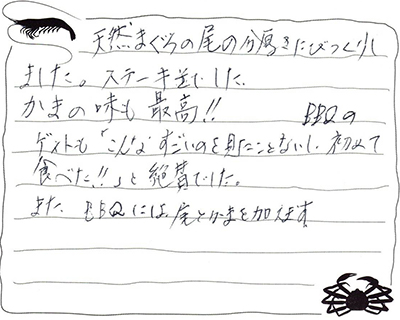 天然まぐろの尾の分厚さにびっくりし
ました。ステーキ差でした
かまの味も最高!! BBQの
ゲストも「こんなすごいのを見たことないし、初めて
食べた!!」と絶賛でした。
また、BBQには尾とかまを加えます